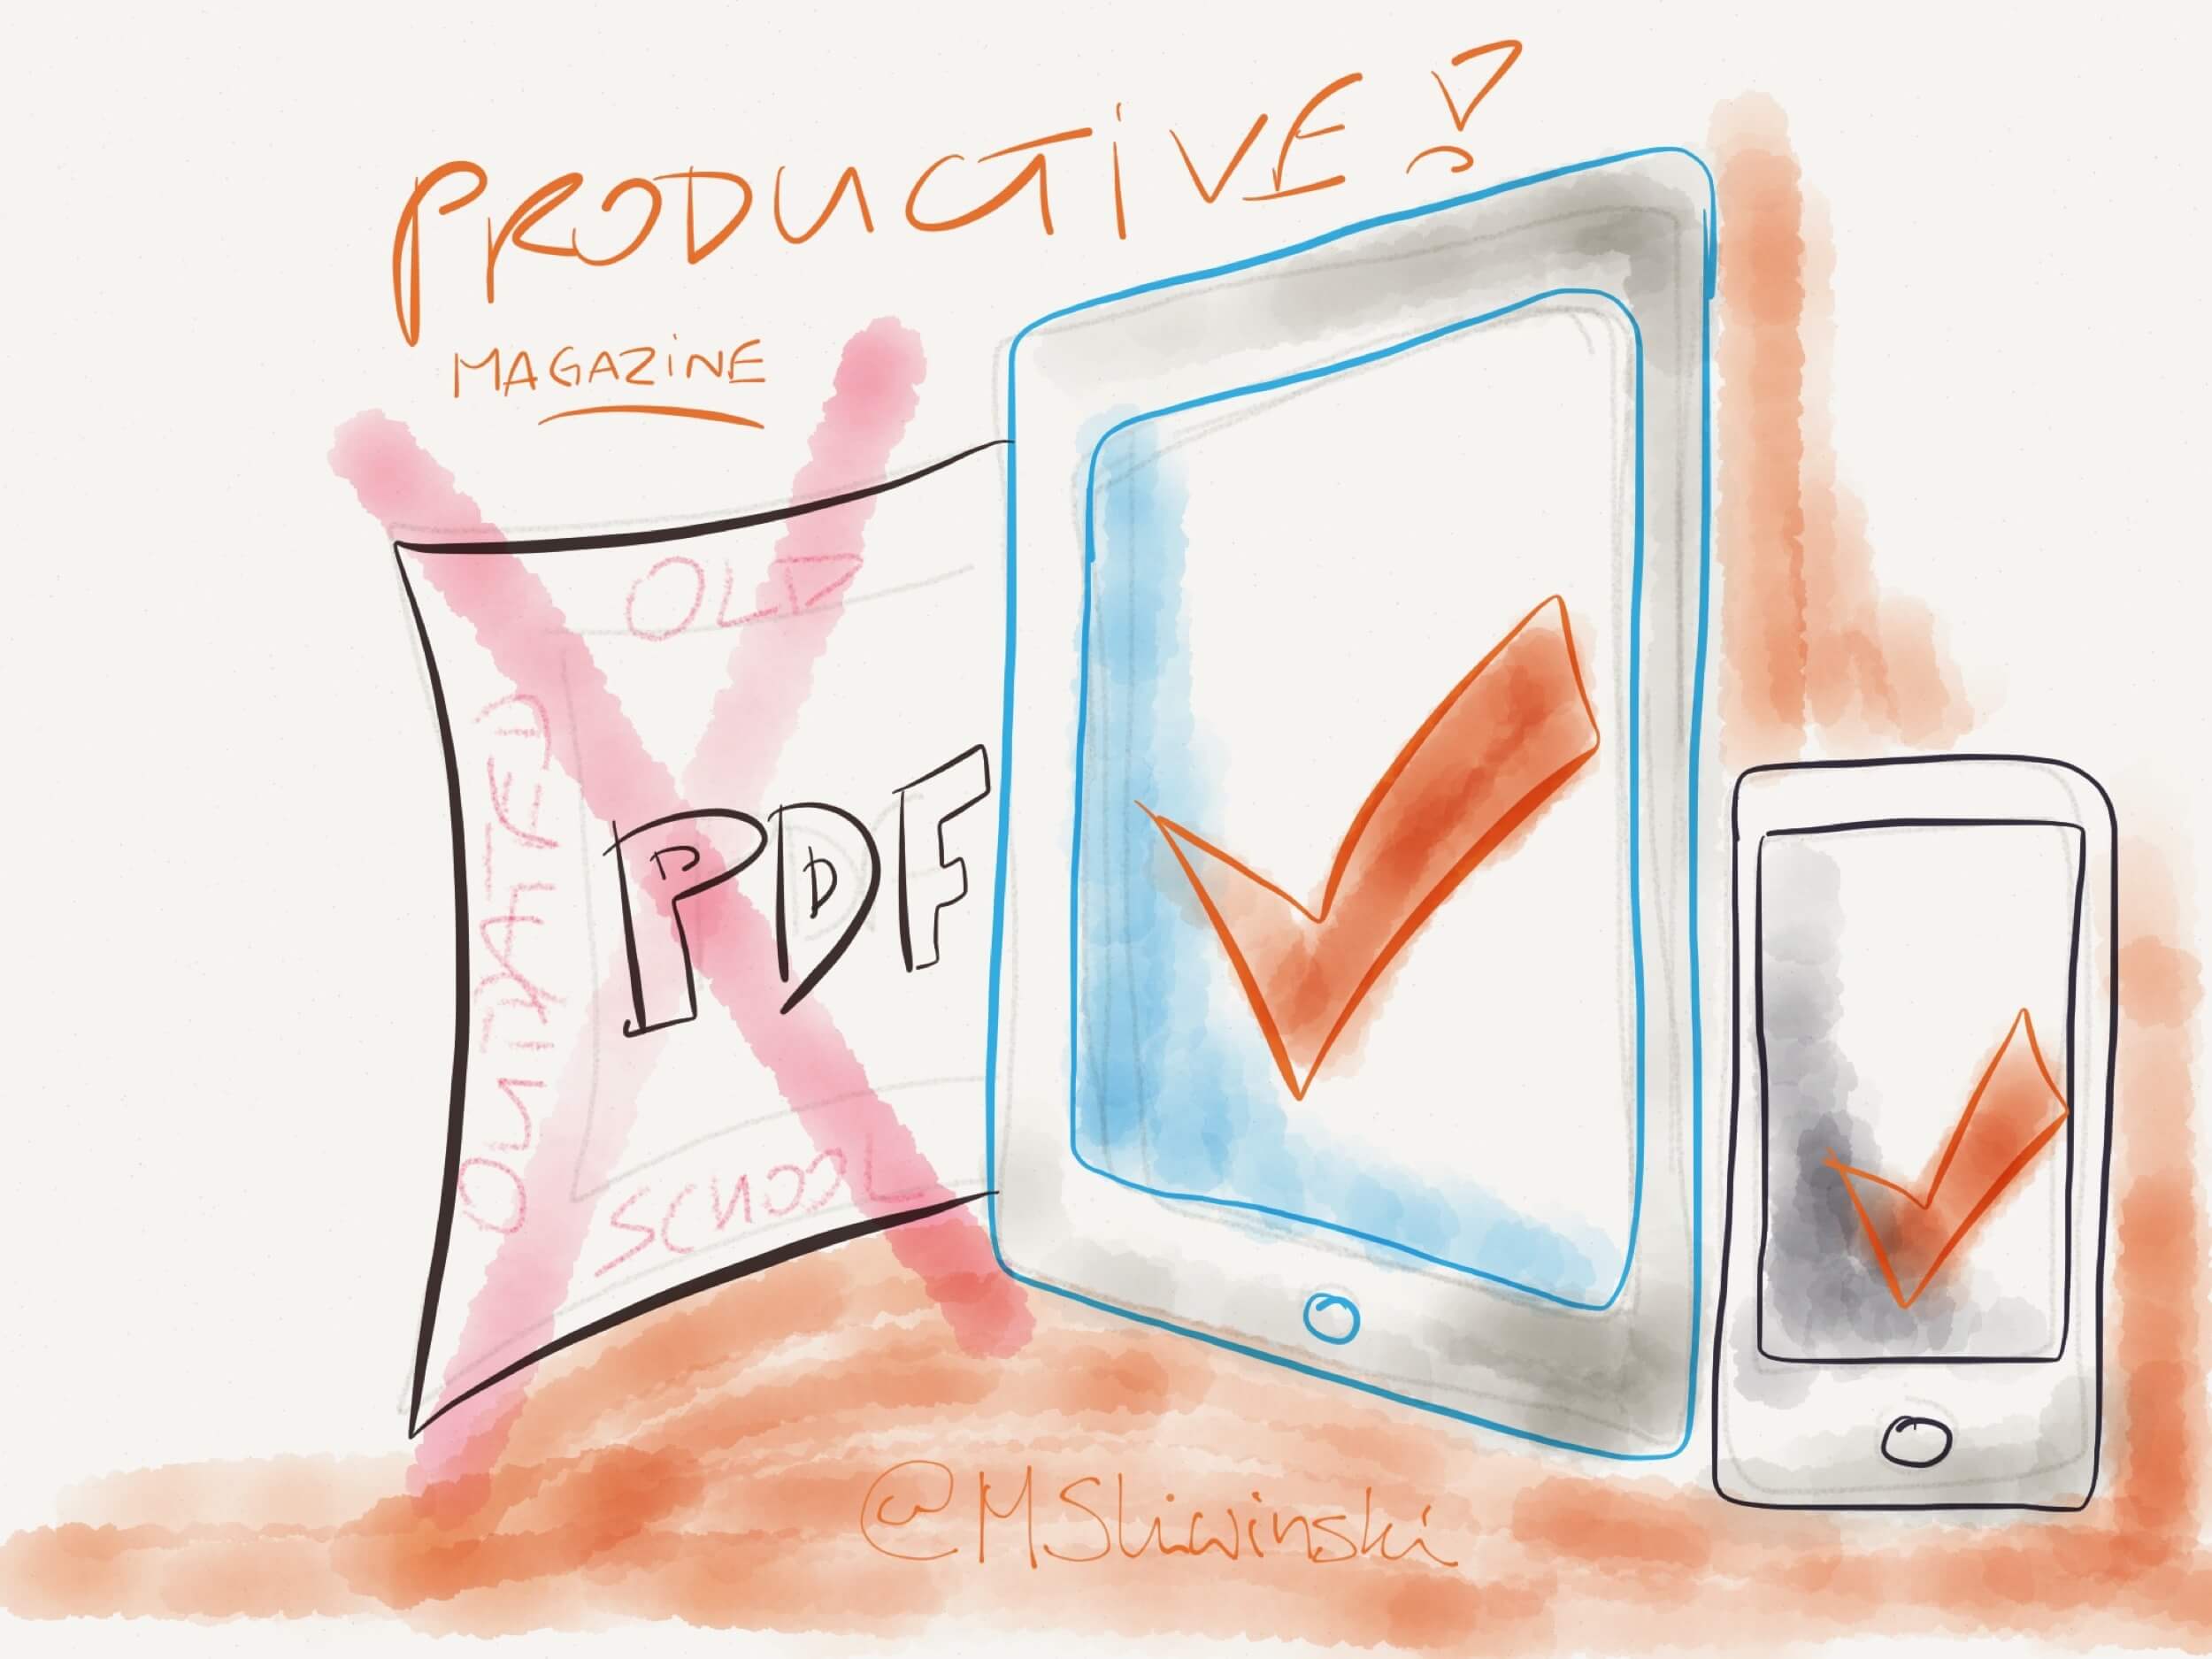 PRODUCTIVE!
MAGAZINE
OLD
OUTDATED
PDF
SCHOOL
@MSliwinski